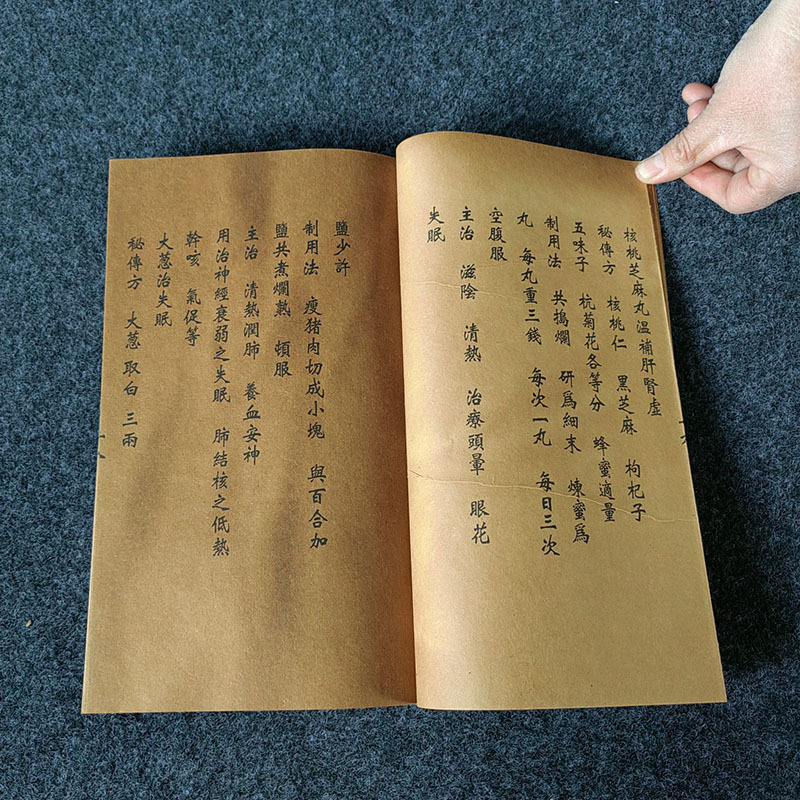 核桃芝麻丸 溫補肝腎虛
秘傳方 核桃仁 黑芝麻 枸杞子
五味子 杭菊花各等分 蜂蜜適量
制用法 共搗爛 研爲細末 煉蜜爲
丸 每丸重三錢 每次一丸 每日三次
空腹服
主治 滋陰 清熱 治療頭暈 眼花
失眠
鹽少許
制用法 瘦猪肉切成小塊 與百合加
鹽共煮爛熟 頓服
主治 清熱潤肺 養血安神
用治神經衰弱之失眠 肺結核之低熱
幹咳 氣促等
大蔥治失眠
秘傳方 大蔥 取白 三兩